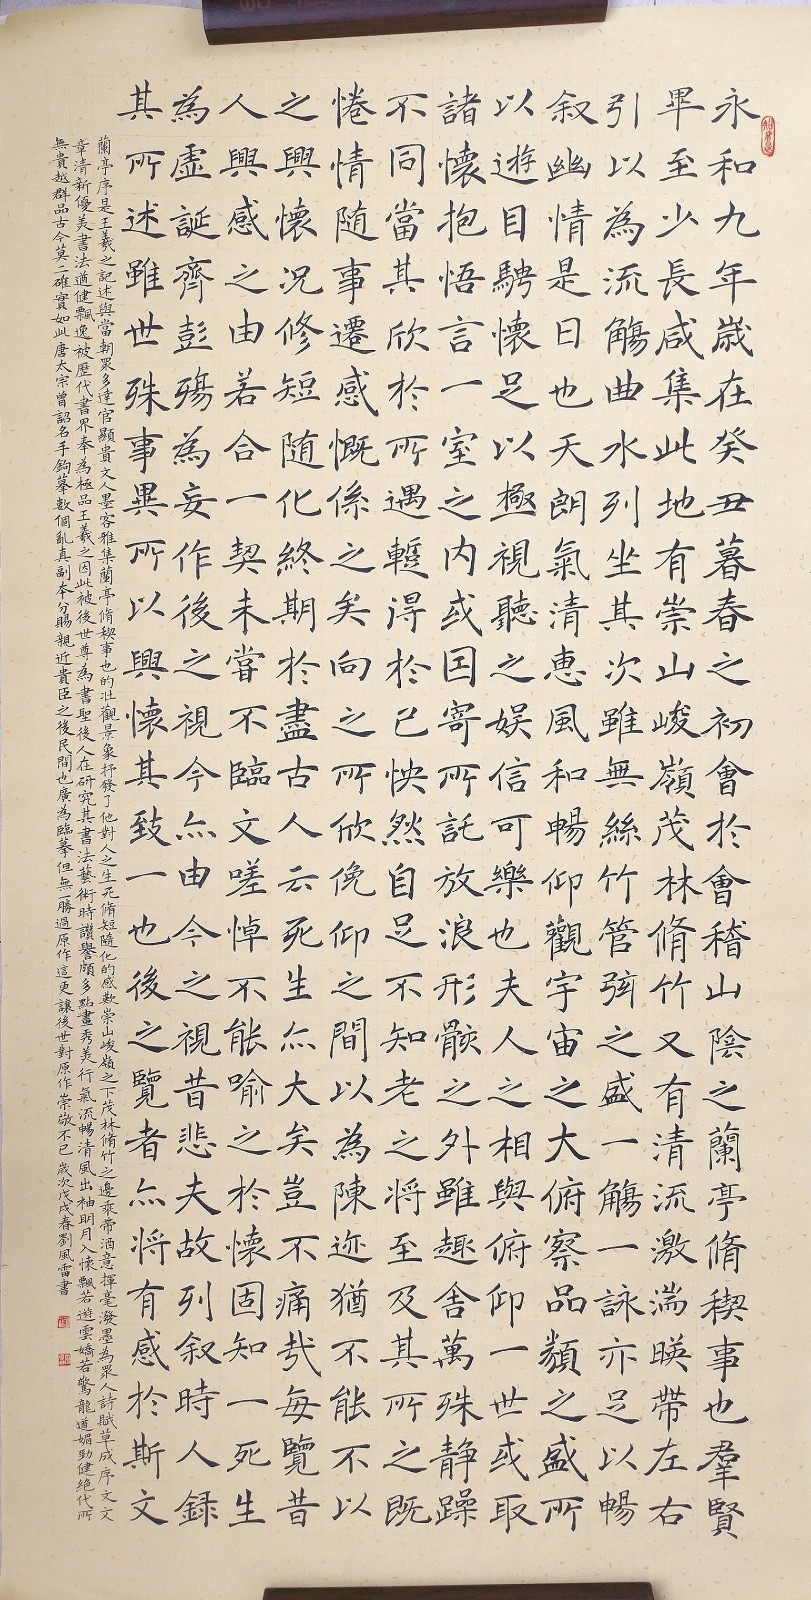 永和九年歲在癸丑暮春之初會於會稽山陰之蘭亭脩稧事也羣賢
畢至少長咸集此地有崇山峻嶺茂林脩竹又有清流激湍暎帶左右
引以為流觴曲水列坐其次雖無絲竹管弦之盛一觴一詠亦足以暢
叙幽情是日也天朗氣清惠風和暢仰觀宇宙之大俯察品類之盛所
以遊目騁懷足以極視聽之娱信可樂也夫人之相與俯仰一世或取
諸懷抱悟言一室之内或因寄所託放浪形骸之外雖趣舎萬殊静躁
不同當其欣於所遇蹔得於己怏然自足不知老之將至及其所之既
惓情随事遷感慨係之矣向之所欣俛仰之間以為陳迹猶不能不以
之興懷况修短随化終期於盡古人云死生亦大矣豈不痛哉每覽昔
人興感之由若合一契未嘗不臨文嗟悼不能喻之於懷固知一死生
為虛誕齊彭殤為妄作後之視今亦由今之視昔悲夫故列叙時人録
其所述雖世殊事異所以興懷其致一也後之覽者亦将有感於斯文
蘭亭序是王羲之記述與當朝眾多達官顯貴文人墨客雅集蘭亭脩稧事也的壯觀景象抒發了他對人之生死脩短隨化的感歎崇山峻嶺之下茂林脩竹之邊乘帶酒意揮毫潑墨為眾人詩賦草成序文文
章清新優美書法遒健飄逸被歷代書界奉為極品王羲之因此被後世尊為書聖後人在研究其書法藝術時讚譽頗多點畫秀美行氣流暢清風出袖明月入懷飄若遊雲嬌若驚龍遒媚勁健絕代所
無貴越群品古今莫二確實如此唐太宗曾詔名手鉤摹數個亂真副本分賜親近貴臣之後民間也廣為臨摹但無勝過原作這更讓後世對原作崇敬不已 歲次戊戌春劉風雷書